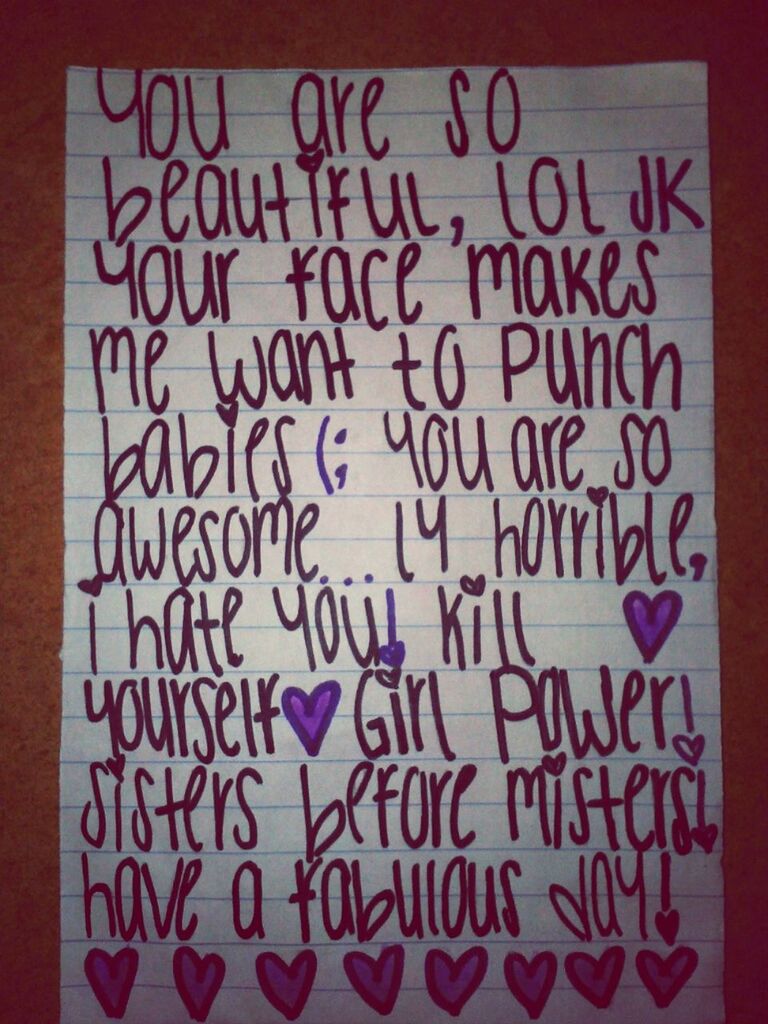 You are so
beautiful, lol JK
Your face makes
me want to punch
babies (; You are so
awesome... ly horrible,
i hate you! kill
yourself Girl Power!
sisters before misters!
have a fabulous day!